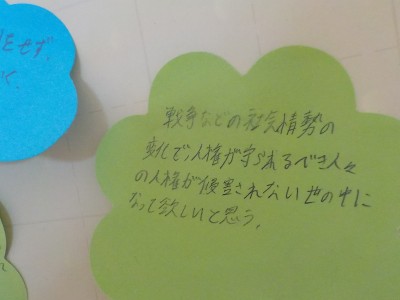 をせず、
く、
戦争などの社会情勢の
変化で、人権が守られるべき人々
の人権が侵害されない世の中に
なって欲しいと思う。